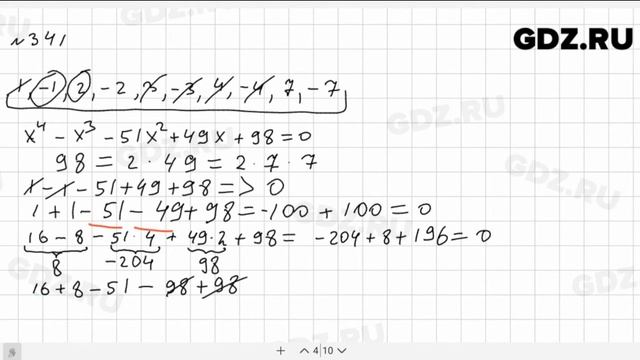 №341
GDZ.RU
1, -1, 2, -2, 3, -3, 4, -4, 7, -7
x⁴ - x³ - 51x² + 49x + 98 = 0
98 = 2 · 49 = 2 · 7 · 7
1 - 1 - 51 + 49 + 98 => 0
1 + 1 - 51 - 49 + 98 = -100 + 100 = 0
16 - 8 - 51 · 4 + 49 · 2 + 98 = -204 + 8 + 196 = 0
8 -204 98
16 + 8 - 51 - 98 + 98
4|10